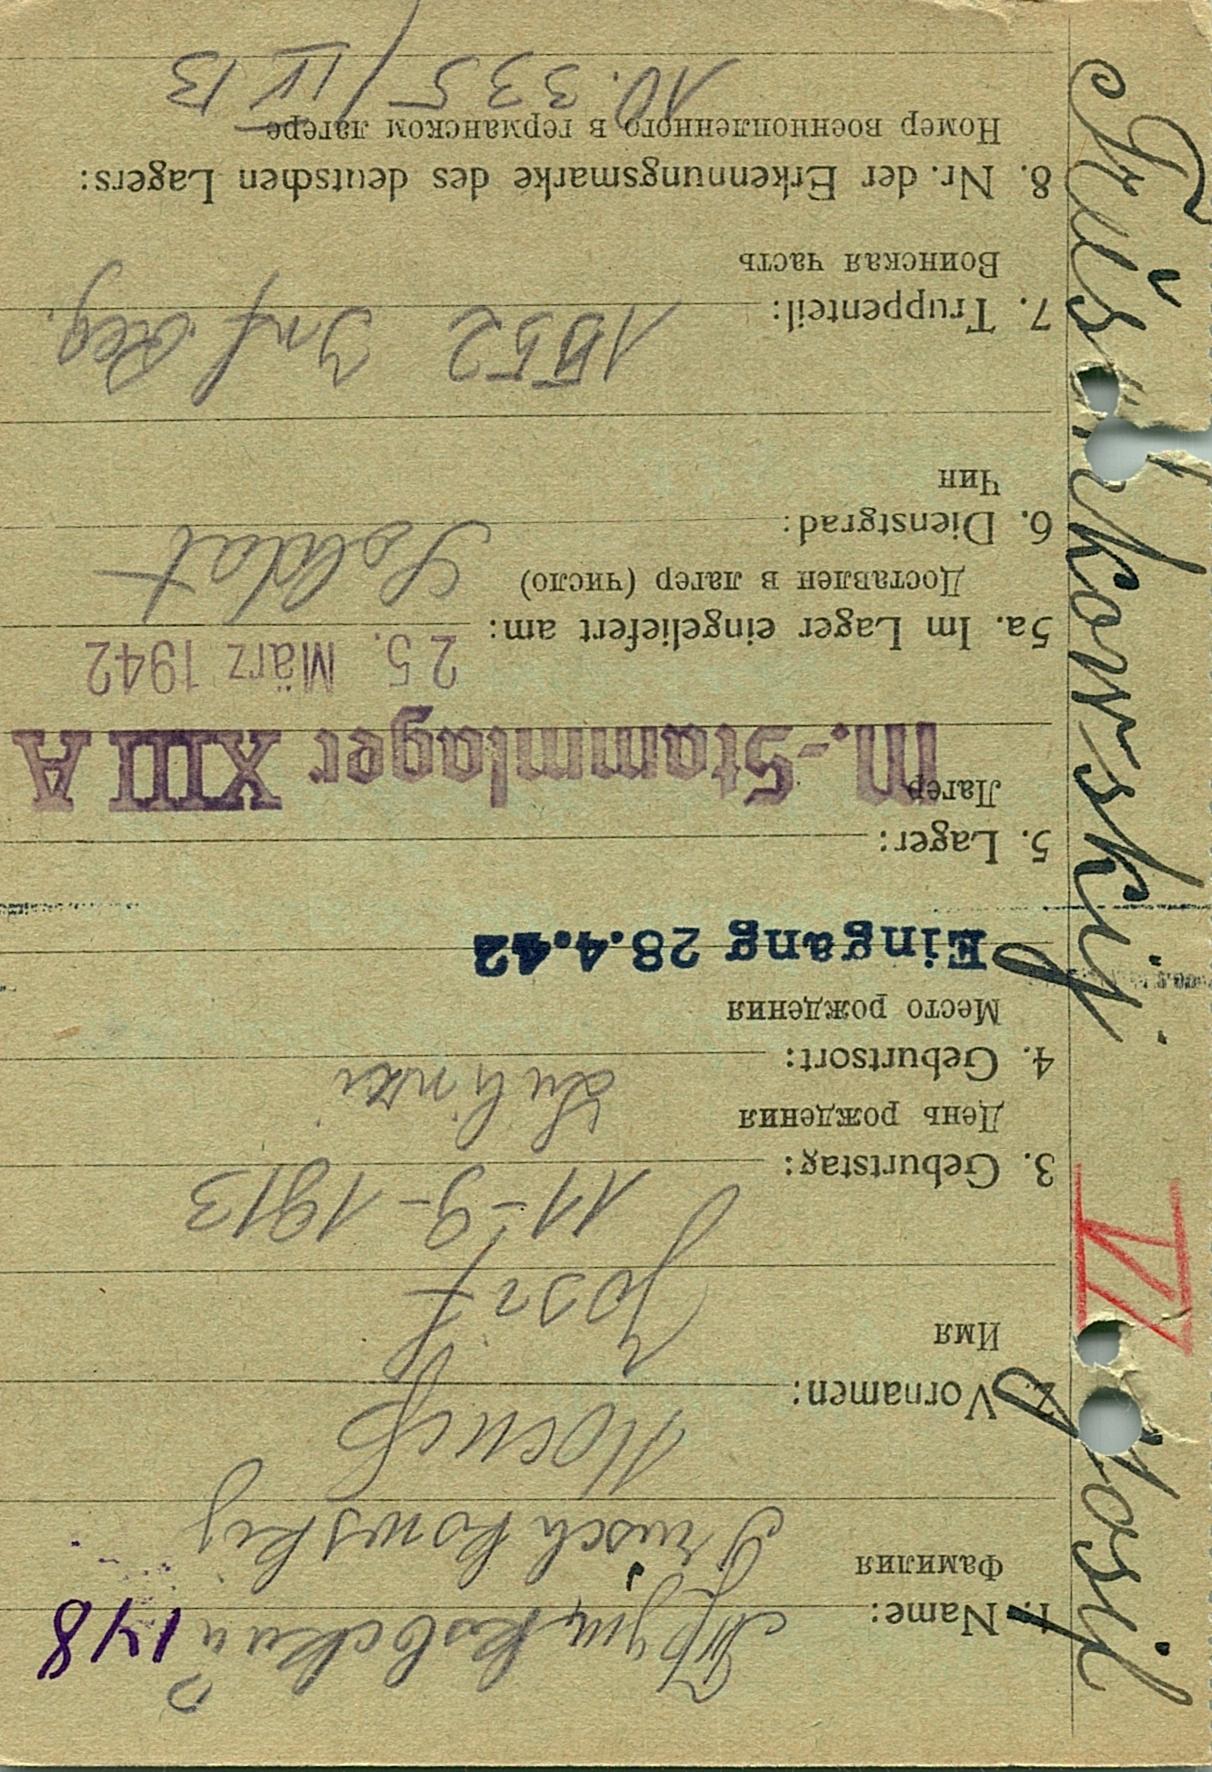 Trüschkowskij
Josif
VI
148
1. Name: Трушковский
Фамилия
Truschkowskij
2. Vornamen: Иосиф
Имя
Josif
3. Geburtstag: 11-9-1913
День рождения
4. Geburtsort:
Место рождения
Eingang 28.4.42
5. Lager:
Лагер
M.-Stammlager XIII A
5a. Im Lager eingeliefert am: 25. März 1942
Доставлен в лагер (число)
6. Dienstgrad: Soldat
Чин
7. Truppenteil: 1552 Inf. Reg.
Воинская часть
8. Nr. der Erkennungsmarke des deutschen Lagers:
Номер военнопленного в германском лагере
10.335/IV B